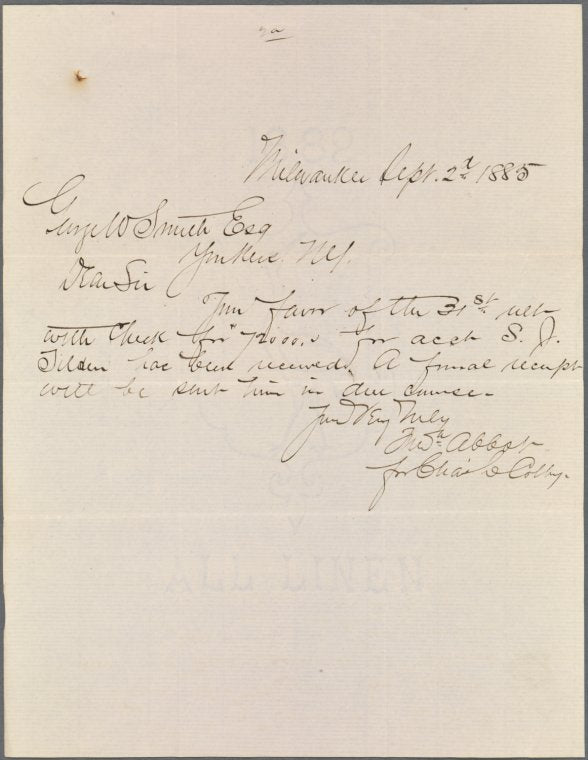 Milwaukee Sept. 2d 1885
George W Smith Esq
Yonkers. NY.
Dear Sir
Your favor of the 31st ult
with Check for for acct S. J.
Tilden has been received. A formal receipt
will be sent him in due course.
Yours Very Truly
Abbot
for Chas L Colby.
ALL LINEN